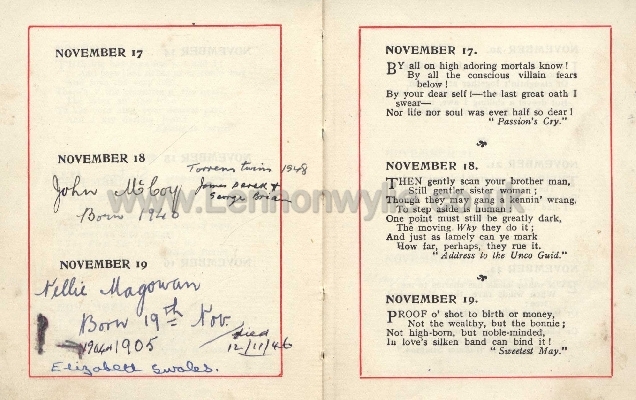 NOVEMBER 17
NOVEMBER 18
Torrens twins 1948
John McCoy
James Derek &
George Brian
Born 1946
NOVEMBER 19
Nellie Magowan
Born 19th Nov.
1904 1905
died
12/11/46
Elizabeth Swales.
NOVEMBER 17.
BY all on high adoring mortals know!
By all the conscious villain fears
below!
By your dear self!—the last great oath I
swear—
Nor life nor soul was ever half so dear!
"Passion's Cry."
NOVEMBER 18.
THEN gently scan your brother man,
Still gentler sister woman;
Though they may gang a kennin' wrang,
To step aside is human:
One point must still be greatly dark,
The moving Why they do it;
And just as lamely can ye mark
How far, perhaps, they rue it.
"Address to the Unco Guid."
NOVEMBER 19.
PROOF o' shot to birth or money,
Not the wealthy, but the bonnie;
Not high-born, but noble-minded,
In love's silken band can bind it!
"Sweetest May."
www.Lennonwylie.co.uk